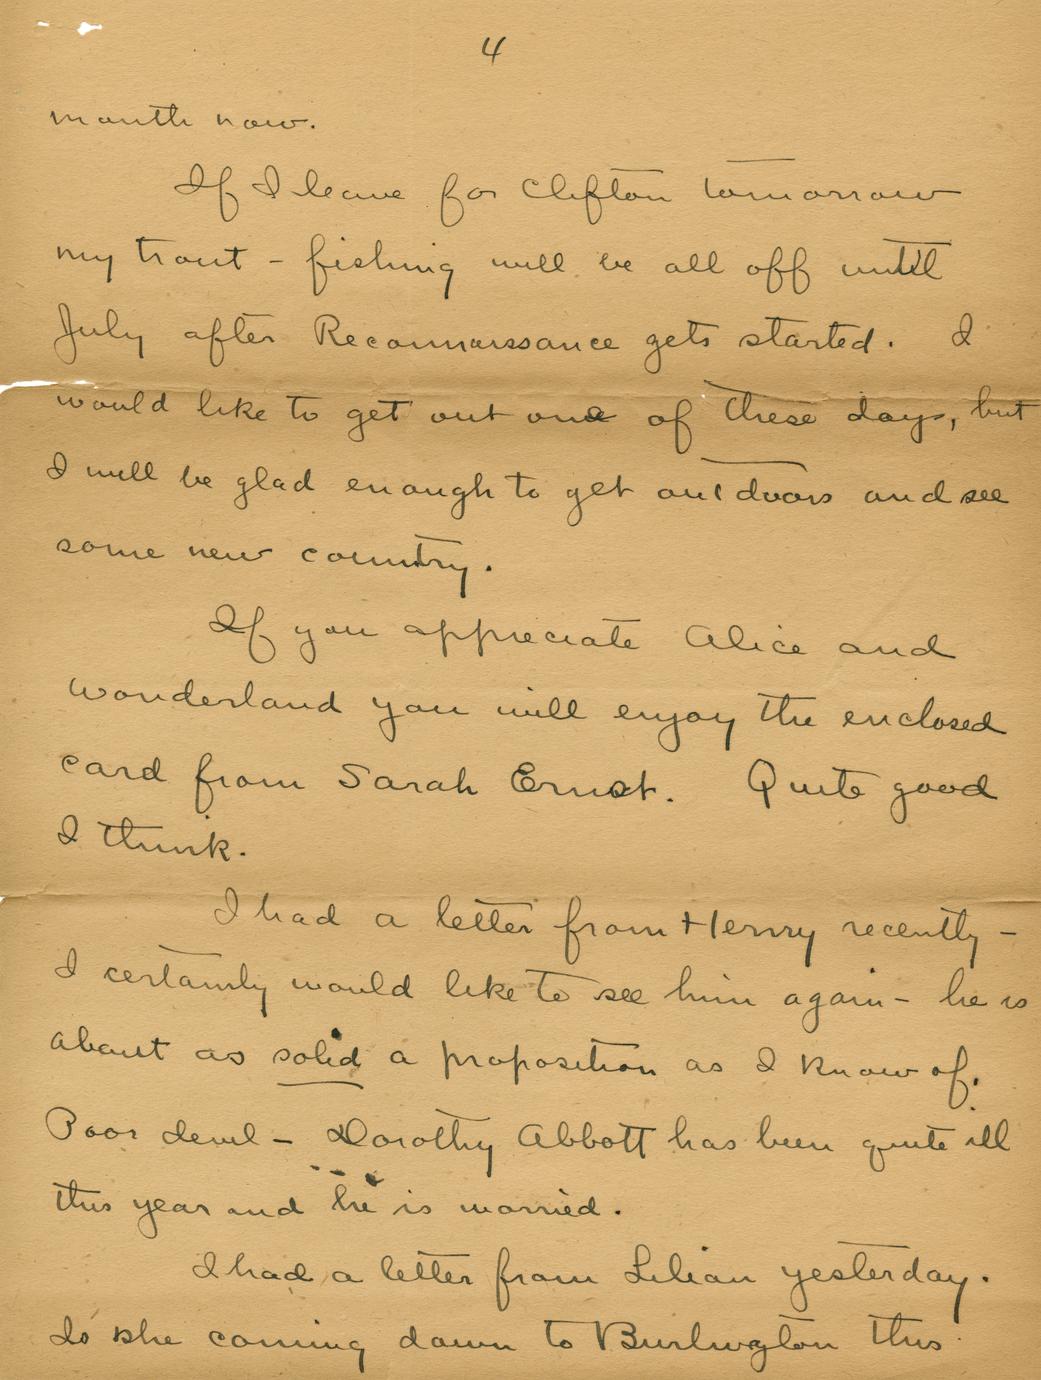 4
month now.
If I leave for Clifton tomorrow
my trout - fishing will be all off until
July after Reconnaissance gets started. I
would like to get out one of these days, but
I will be glad enough to get outdoors and see
some new country.
If you appreciate Alice and
Wonderland you will enjoy the enclosed
card from Sarah Ernst. Quite good
I think.
I had a letter from Henry recently -
I certainly would like to see him again - he is
about as solid a proposition as I know of.
Poor devil - Dorothy Abbott has been quite ill
this year and he is worried.
I had a letter from Lilian yesterday.
Is she coming down to Burlington this